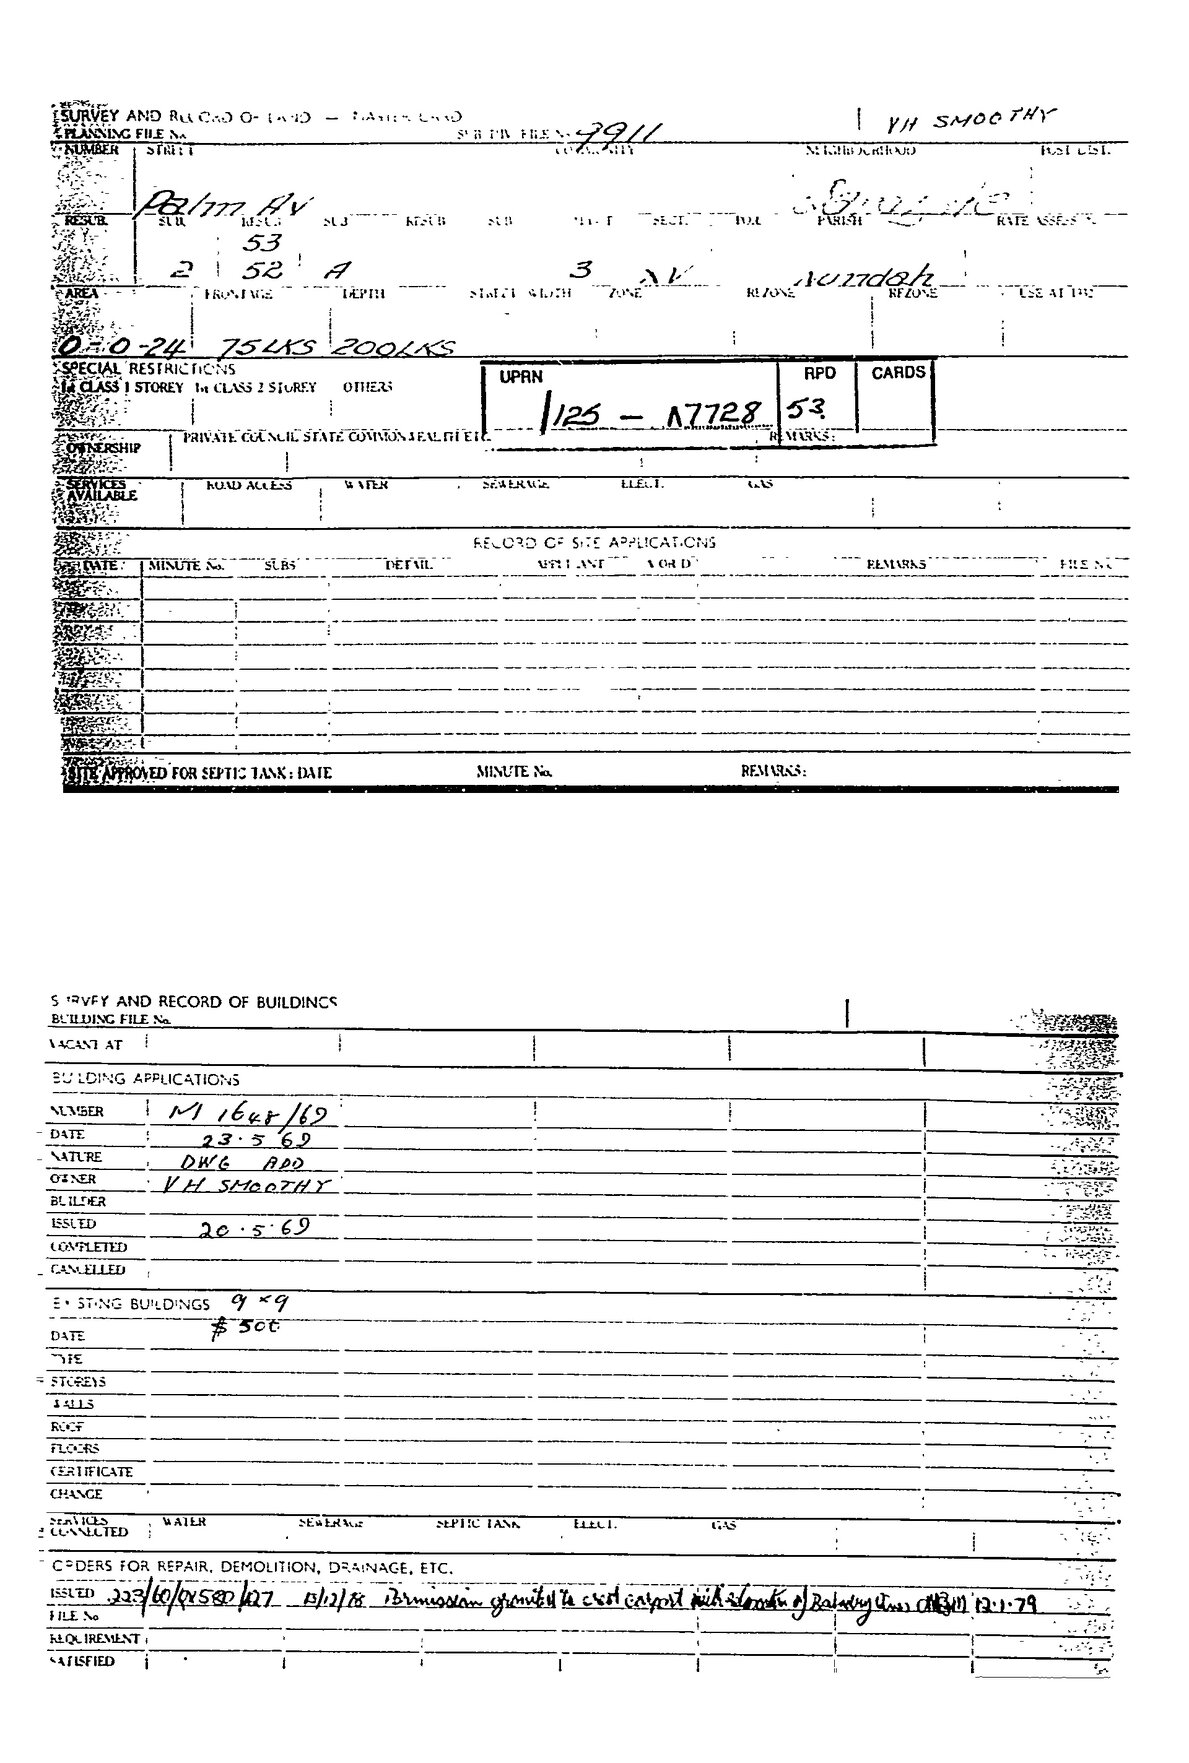 SURVEY AND RECORD OF LAND — MASTER CARD
PLANNING FILE No. SUB DIV. FILE No. 9911 VH SMOOTHY
NUMBER STREET COMMUNITY NEIGHBOURHOOD POST DIST.
Palm Av
RESUB. SUB. RESUB SUB RESUB SUB SECT. POR. PARISH RATE ASSESS N.
53
2 52 A 3 XV Nundah
AREA FRONTAGE DEPTH STREET WIDTH ZONE REZONE REZONE USE AT
0-0-24 75LKS 200LKS
SPECIAL RESTRICTIONS
1st CLASS 1 STOREY 1st CLASS 2 STOREY OTHERS
UPRN RPD CARDS
125 — 17728 53
OWNERSHIP PRIVATE COUNCIL STATE COMMONWEALTH ETC. REMARKS:
SERVICES AVAILABLE ROAD ACCESS WATER SEWERAGE ELECT. GAS
RECORD OF SITE APPLICATIONS
DATE MINUTE No. SUBS DETAIL APPLICANT A OR D REMARKS FILE No.
SITE APPROVED FOR SEPTIC TANK: DATE MINUTE No. REMARKS:
SURVEY AND RECORD OF BUILDINGS
BUILDING FILE No.
VACANT AT
BUILDING APPLICATIONS
NUMBER M 1648/69
DATE 23.5 69
NATURE DWG ADD
OWNER VH SMOOTHY
BUILDER
ISSUED 20.5.69
COMPLETED
CANCELLED
EXISTING BUILDINGS 9 x 9
$ 500
DATE
TYPE
STOREYS
WALLS
ROOF
FLOORS
CERTIFICATE
CHANGE
SERVICES CONNECTED WATER SEWERAGE SEPTIC TANK ELECT. GAS
ORDERS FOR REPAIR, DEMOLITION, DRAINAGE, ETC.
ISSUED 223/60/ /78 Permission granted to erect carport of 12.1.79
FILE No
REQUIREMENT
SATISFIED